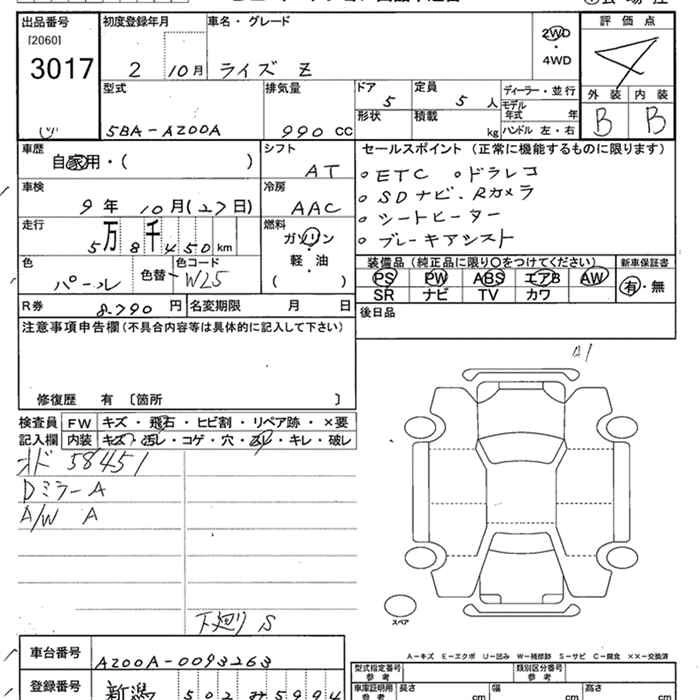 出品番号 初度登録年月 車名・グレード 評価点
[2060]
3017 2 10月 ライズ Z 2WD ・ 4WD 4
型式 排気量 ドア 定員 ディーラー・並行 外装 内装
5 5人 モデル年式 年 B B
5BA-A200A 990cc 形状 積載 kg ハンドル 左・右
車歴 シフト セールスポイント (正常に機能するものに限ります)
自家用・( ) AT 。ETC 。ドラレコ
車検 冷房 。SDナビ、Rカメラ
9年 10月(27日) AAC 。シートヒーター
走行 燃料 。ブレーキアシスト
5万8千450km ガソリン・軽・油 ( )
色 色替 色コード 装備品 (純正品に限り○をつけてください) 新車保証書
パール W25 PS PW ABS エアB AW 有・無
SR ナビ TV カワ
R券 8.790円 名変期限 月 日 後日品
注意事項申告欄(不具合内容等は具体的に記入して下さい)
A1
修復歴 有 〔箇所 〕
検査員 FW キズ・飛石・ヒビ割・リペア跡・×要
記入欄 内装 キズ・汚レ・コゲ・穴・スレ・キレ・破レ
オド 58451
Dミラー A
A/W A
スペア
下廻り S
A-キズ E-エクボ U-凹み W-補修跡 S-サビ C-腐食 ××-交換済
車台番号 A200A-0093263 型式指定番号 参考 類別区分番号 参考
登録番号 新潟 502 み 5994 車庫証明用 参考 長さ cm 幅 cm 高さ cm